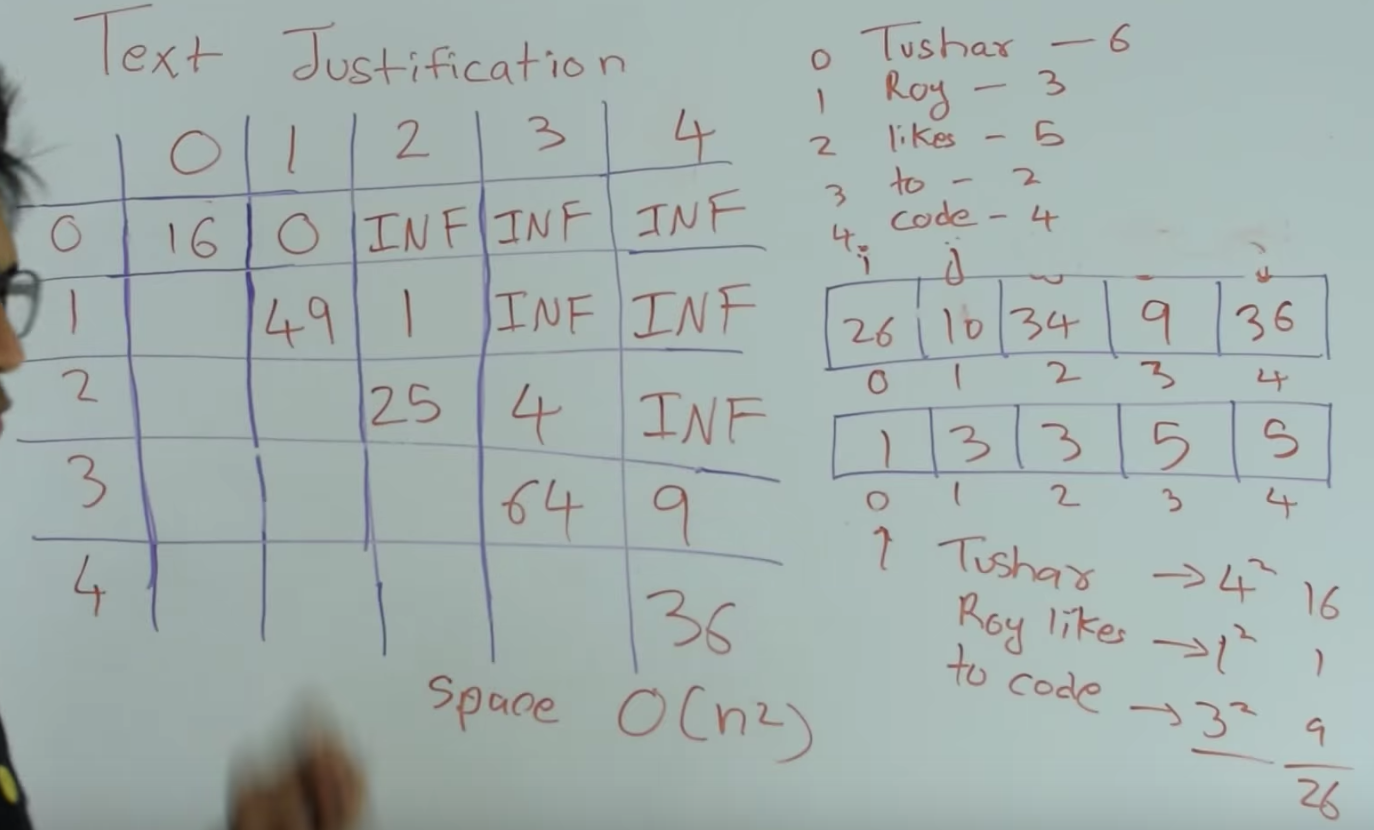 Text Justification
0 1 2 3 4
0 16 0 INF INF INF
1 49 1 INF INF
2 25 4 INF
3 64 9
4 36
Space O(n²)
0 Tushar - 6
1 Roy - 3
2 likes - 5
3 to - 2
4 code - 4
i j
26 10 34 9 36
0 1 2 3 4
1 3 3 5 5
0 1 2 3 4
Tushar → 4² 16
Roy likes → 1² 1
to code → 3² 9
26